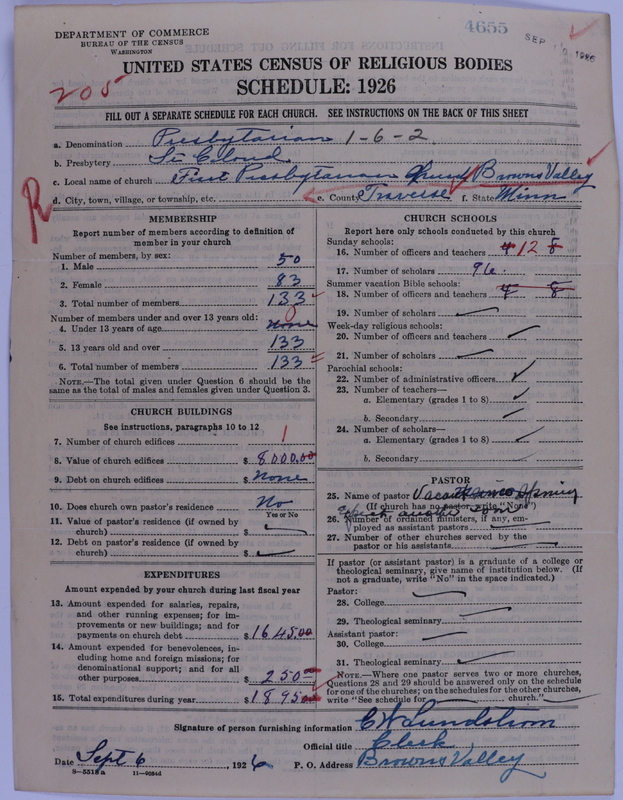 4655
SEP
DEPARTMENT OF COMMERCE
BUREAU OF THE CENSUS
WASHINGTON
UNITED STATES CENSUS OF RELIGIOUS BODIES
SCHEDULE: 1926
205
FILL OUT A SEPARATE SCHEDULE FOR EACH CHURCH. SEE INSTRUCTIONS ON THE BACK OF THIS SHEET
a. Denomination Presbytarian 1-6-2
b. Presbytery St Cloud
c. Local name of church First Presbytarian Church Browns Valley
d. City, town, village, or township, etc. e. County Traverse f. State Minn
R
MEMBERSHIP
Report number of members according to definition of
member in your church
Number of members, by sex:
1. Male 50
2. Female 83
3. Total number of members 133
Number of members under and over 13 years old: 0
4. Under 13 years of age none
5. 13 years old and over 133
6. Total number of members 133
NOTE.—The total given under Question 6 should be the
same as the total of males and females given under Question 3.
CHURCH BUILDINGS
See instructions, paragraphs 10 to 12
7. Number of church edifices 1
8. Value of church edifices $ 8000.00
9. Debt on church edifices $ None
10. Does church own pastor's residence No
Yes or No
11. Value of pastor's residence (if owned by
church) $
12. Debt on pastor's residence (if owned by
church) $
EXPENDITURES
Amount expended by your church during last fiscal year
13. Amount expended for salaries, repairs,
and other running expenses; for im-
provements or new buildings; and for
payments on church debt $ 1645.00
14. Amount expended for benevolences, in-
cluding home and foreign missions; for
denominational support; and for all
other purposes $ 250
15. Total expenditures during year $ 1895
CHURCH SCHOOLS
Report here only schools conducted by this church
Sunday schools:
16. Number of officers and teachers 4 12 8
17. Number of scholars 96.
Summer vacation Bible schools:
18. Number of officers and teachers 4 8
19. Number of scholars
Week-day religious schools:
20. Number of officers and teachers
21. Number of scholars
Parochial schools:
22. Number of administrative officers
23. Number of teachers—
a. Elementary (grades 1 to 8)
b. Secondary
24. Number of scholars—
a. Elementary (grades 1 to 8)
b. Secondary
PASTOR
25. Name of pastor Vacant since Spring
(If church has no pastor, write "None")
expect another soon
26. Number of ordained ministers, if any, em-
ployed as assistant pastors
27. Number of other churches served by the
pastor or his assistants
If pastor (or assistant pastor) is a graduate of a college or
theological seminary, give name of institution below. (If
not a graduate, write "No" in the space indicated.)
Pastor:
28. College
29. Theological seminary
Assistant pastor:
30. College
31. Theological seminary
NOTE.—Where one pastor serves two or more churches,
Questions 28 and 29 should be answered only on the schedule
for one of the churches; on the schedules for the other churches,
write "See schedule for church."
Signature of person furnishing information C W Lundstrom
Official title Clerk
Date Sept 6, 1926 P. O. Address Browns Valley
8—5518a 11—9084d